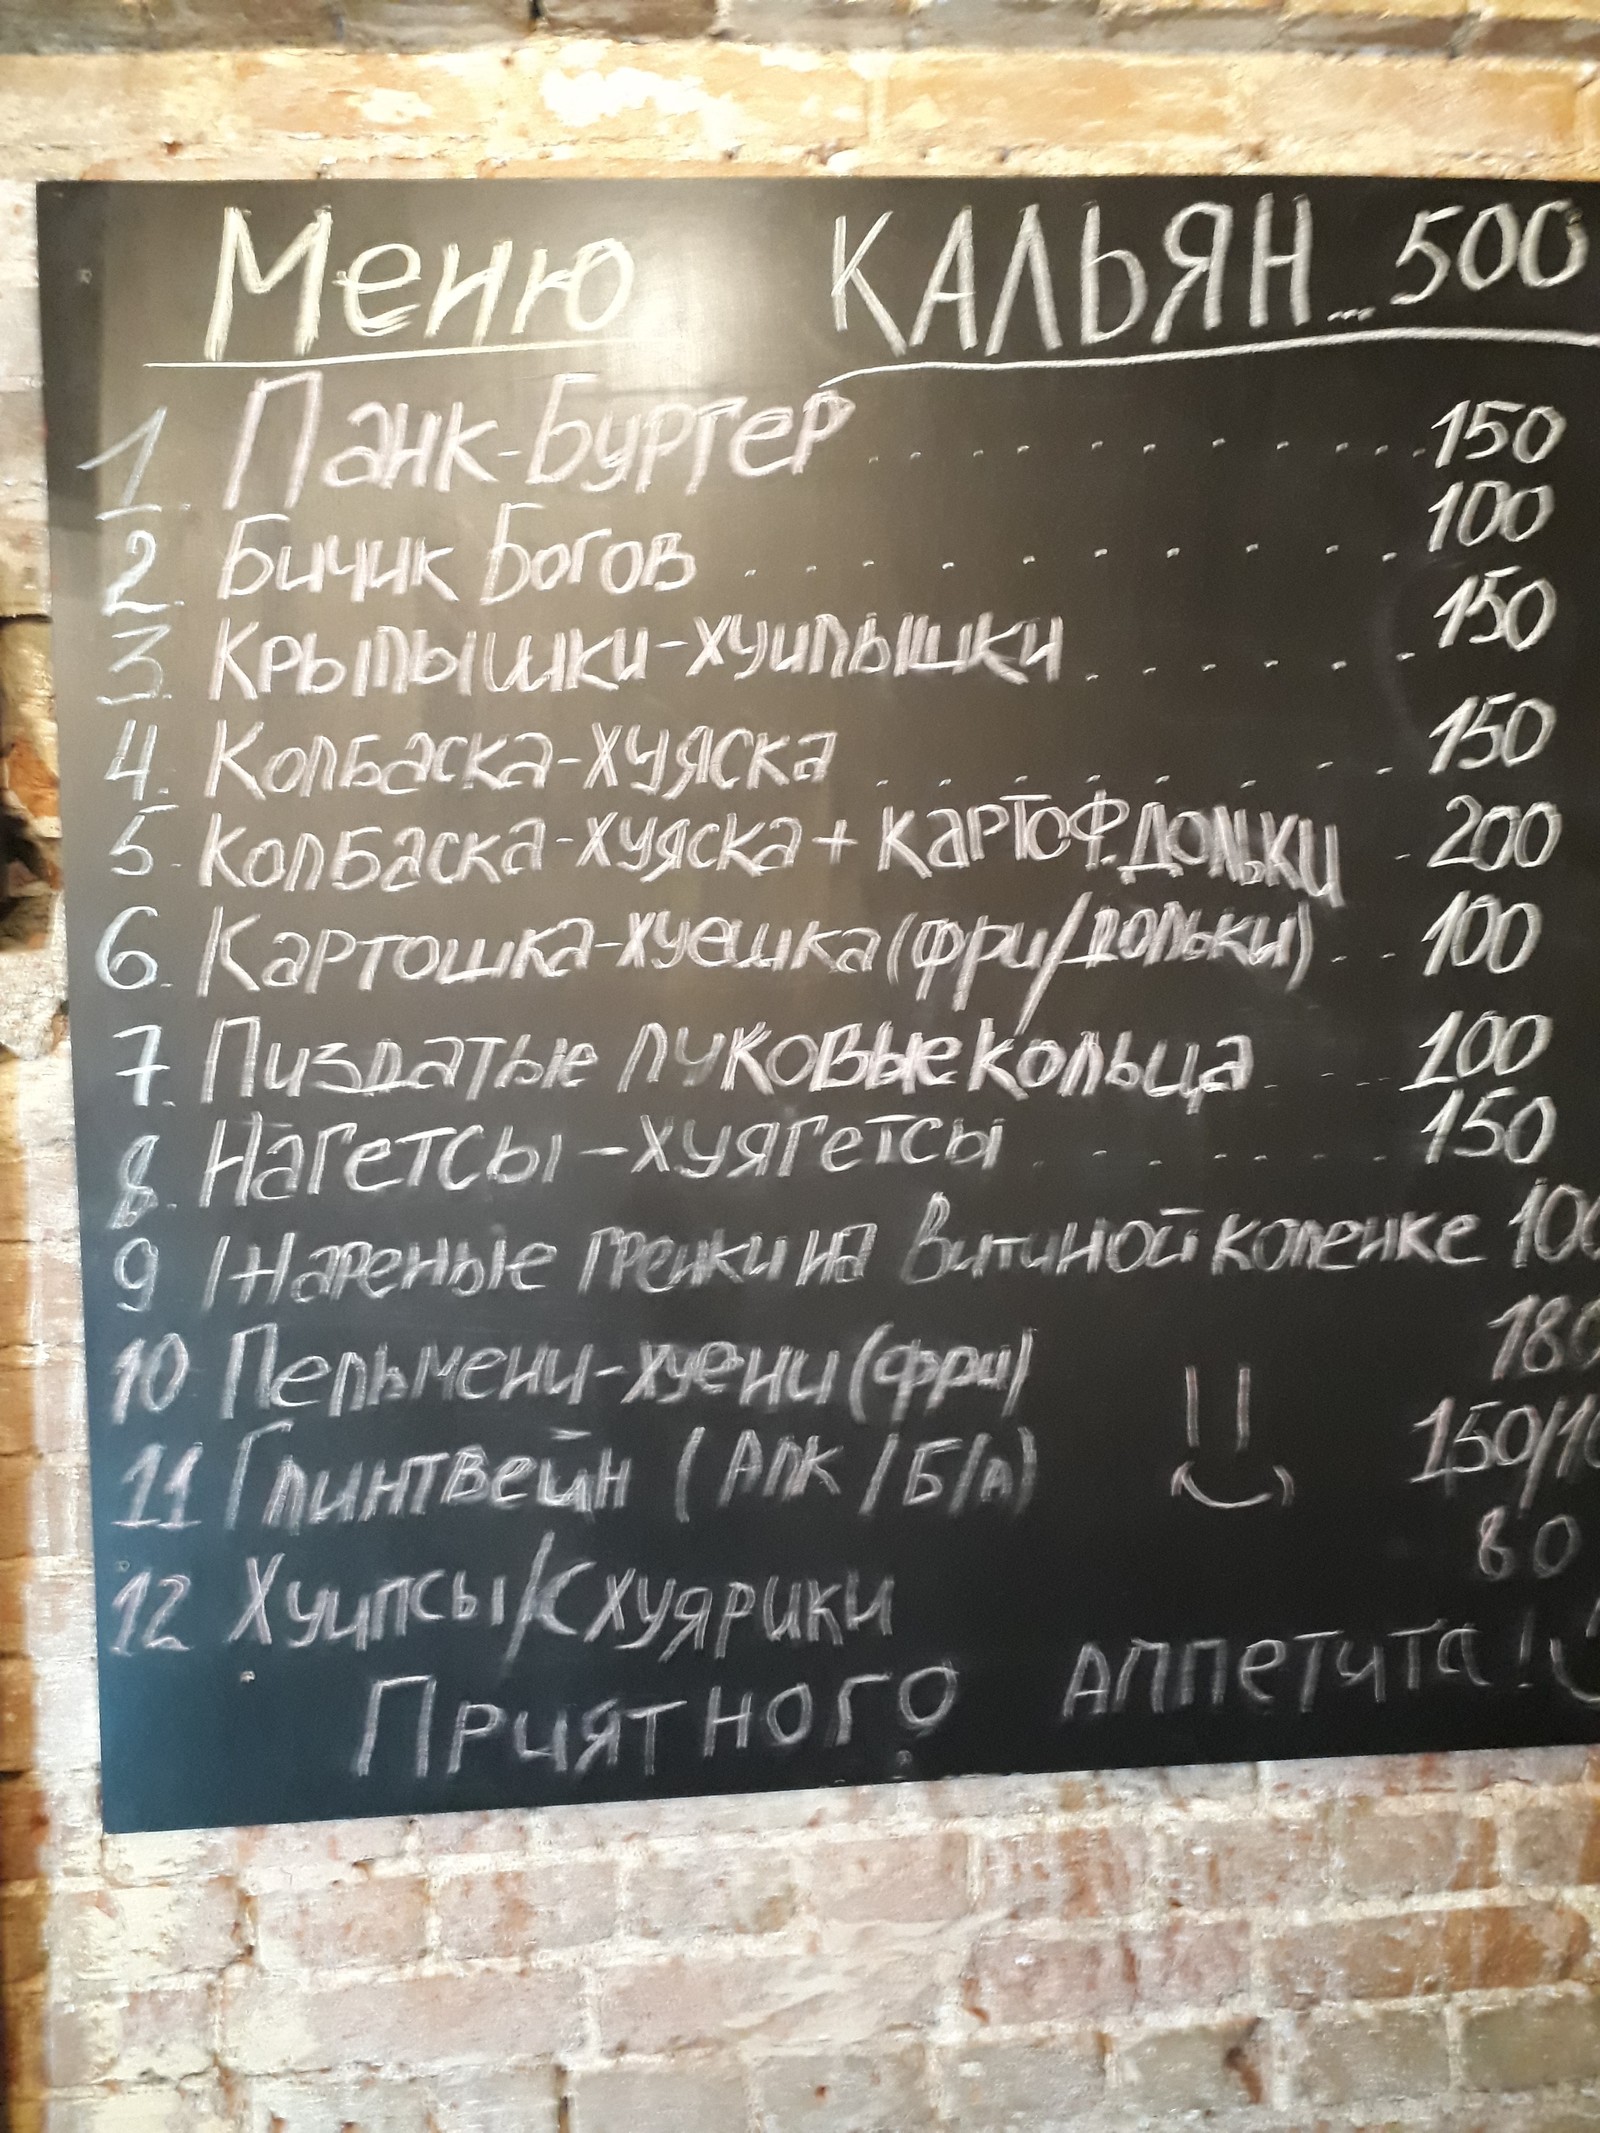 Меню КАЛЬЯН...500
1. Панк-Бургер.........150
2. Бичик Богов.........100
3. Крылышки-хуилышки.....150
4. Колбаска-хуяска.......150
5. Колбаска-хуяска+картоф.дольки - 200
6. Картошка-хуешка(фри/дольки)...100
7. Пиздатые луковые кольца...100
8. Нагетсы-хуягетсы.....150
9 Жареные гренки на Витиной коленке 100
10 Пельмени-хуени(фри) 180
11 Глинтвейн (Алк/Б/а) 150/10
12 Хуипсы/Схуярики 80
Приятного аппетита!